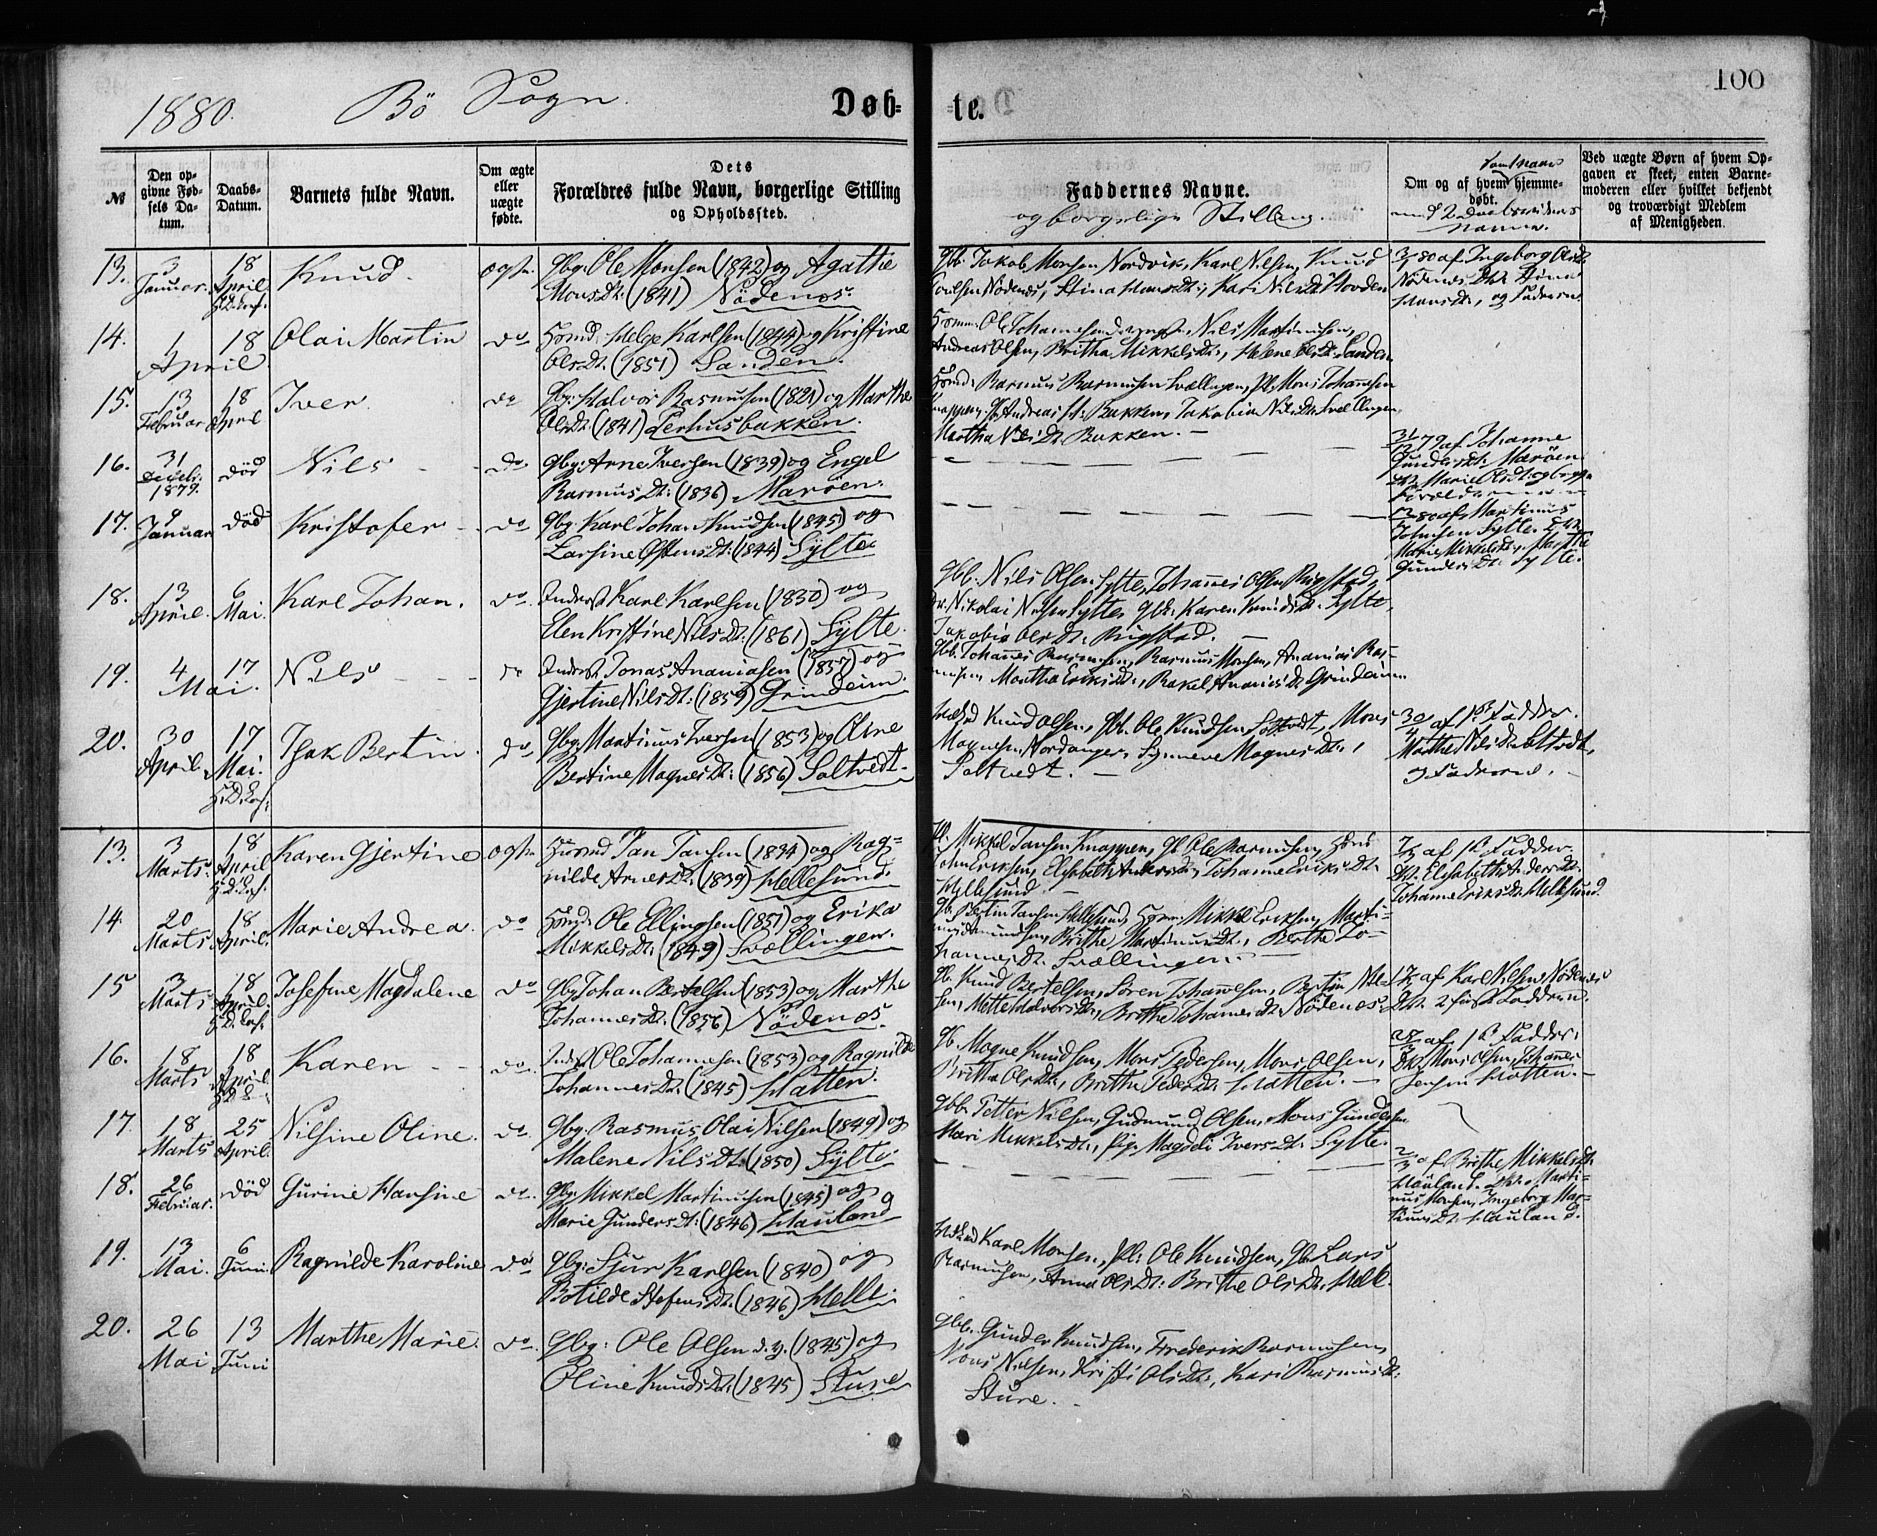 100
1880. Bö Sogn. Døb= te.
№
Den op-
givne Fød-
sels Da-
tum.
Daabs-
Datum.
Barnets fulde Navn.
Om ægte
eller
uægte
fødte.
Dets
Forældres fulde Navn, borgerlige Stilling
og Opholdssted.
Faddernes Navne.
og borgerlige Stilling.
Om og af hvem hjemme-
døbt.
Ved uægte Børn af hvem Op-
gaven er skeet, enten Barne-
moderen eller hvilket bekjendt
og troværdigt Medlem
af Menigheden.
13. 3 Januar. 18 April Knud. ægte. Gbg. Ole Monsen (1842) og Agathe
Monsdt: (1841) Nödenes.
Gb. Jakob Monsen Nordvik, Karl Nilsen, Knud
Nödenes, Stina Hansdt:, Kari Nilsdt Hovden
14. 1 April 18 Olai Martin do Helge Karlsen (1844) og Kristine
Olsdt. (1851) Sanden.
Ole Johannesen, Nils Martinusen,
Andreas Olsen, Britha Mikkelsdt:, Helene Olsdt. Sanden
15. 13 Februar 18 April Iver. do Gbg: Halvor Rasmusen (1821) og Marthe
Olsdt: (1841) Lerhusbakken.
Rasmus Rasmusen Svællingen, Mons Johannesen
Knappen, Andreas Bakken, Jakobia Nilsdt. Svællingen,
Martha Nilsdt. Bakken. —
16. 31 Decbr. 1879. död Nils - - do Gbg: Arne Iversen (1839) og Engel
Rasmusdt: (1836) Maröen.
31/12 79 af Johanne
Gundersdt. Maröen
17. 9 Januar död Kristofer - do Gbg. Karl Johan Knudsen (1845) og
Larsine Östensdt: (1844) Sylte
af Martinus
Johnsen Sylte
Marie Mikkelsdt., Marthe
Gundersdt: Sylte.
18. 13 April. 6 Mai. Karl Johan. do. Inderst Karl Karlsen (1830) og
Elen Kristine Nilsdt: (1861) Sylte.
Gbb. Nils Olsen Sylte, Johannes Olsen Rigstad,
Nikolai Nilsen Sylte, Karen Knudsdt. Sylte,
Jakobia Olsdt: Rigstad. —
19. 4 Mai 17 Nils - - - do Inderst. Jonas Ananiasen (1857) og
Gjertine Nilsdt: (1859) Grindeim.
Gbb. Johannes Rasmusen, Rasmus Monsen, Ananias Ras-
musen, Martha Eriksdt:, Rakel Ananiasdt Grindeim
20. 30 April 17 Mai. Isak Bertin. do Gbg. Martinus Iversen (1853) og Oline
Bertine Magnesdt: (1856) Soltvedt.
Knud Olsen, Gb. Ole Knudsen Soltvedt, Mons
Magnesen Hordanger, Synneve Magnesdt:,
Soltvedt. —
30/4 af 1ste Fadder.
Marthe Nilsdt. Soltvedt,
og Faderen. -
13. 3 Marts. 18 April Karen Gjertine ægte Jan Jansen (1834) og Rag-
nilde Arnesdt: (1839) Hellesund.
Mikkel Jansen Knappen, Gb Ole Rasmusen,
John Eriksen, Elisabeth Andersdt:, Johanne Eriksdt.
Hellesund —
af 1ste Fadder
Elisabeth Andersdt.
Johanne Eriksdt. Hellesund.
14. 20 Marts 18 April. Marie Andrea. do Ole Ellingsen (1851) og Erika
Mikkelsdt: (1849) Svællingen.
Gb. Bertin Jansen Hellesund, Mikkel Eriksen, Marti-
Brithe Martinusdt:, Berthe Jo-
hannesdt. Svællingen. —
15 3 Marts 18 April. Josefine Magdalene do Gbg Johan Bertelsen (1853) og Marthe
Johannesdt: (1856) Nödenes.
Gb. Knud Bertelsen, Sören Johannesen, Bertin Nil-
sen, Mette Halvorsdt:, Brithe Johannesdt Nödenes
af Karl Nilsen Nödenes
16. 18 Marts 18 April. Karen - - do. Ole Johannesen (1853) og Ragnilde
Johannesdt: (1845) Hatten.
Gb. Magne Knudsen, Mons Pedersen, Mons Olsen,
Britha Olsdt:, Brithe Pedersdt. Hatten. —
af 1ste Fadder,
Mons Olsen, Johannes
Jensen Hatten. —
17. 18 Marts 25 April. Nilsine Oline. do. Gbg. Rasmus Olai Nilsen (1849) og
Malene Nilsdt: (1850) Sylte
Gbb. Petter Nilsen, Gudmund Olsen, Mons Gundersen
Mari Mikkelsdt:, Magdeli Iversdt. Sylte.
18. 26 Februar. död Gurine Hansine do. Gbg: Mikkel Martinusen (1845) og
Marie Gundersdt: (1846) Hauland
af Brithe Mikkelsdt.
Hauland. Marti-
nus Monsen, Ingeborg Mar-
tinusdt. Hauland.
19. 13 Mai. 6 Juni. Ragnilde Karoline do Gbg: Sjur Karlsen (1840) og
Botilde Stefensdt: (1846) Helle.
Karl Monsen, Ole Knudsen, Gb Lars
Rasmusen, Anna Olsdt: Brithe Olsdt. Helle.
20. 26 Mai 13 Juni Marthe Marie. do. Gbg: Ole Olsen d.y. (1845) og
Oline Knudsdt: (1845) Sture
Gbb. Gunder Knudsen, Frederik Rasmusen,
Mons Nilsen, Kristi Olsdt:, Kari Rasmusdt:
Sture.